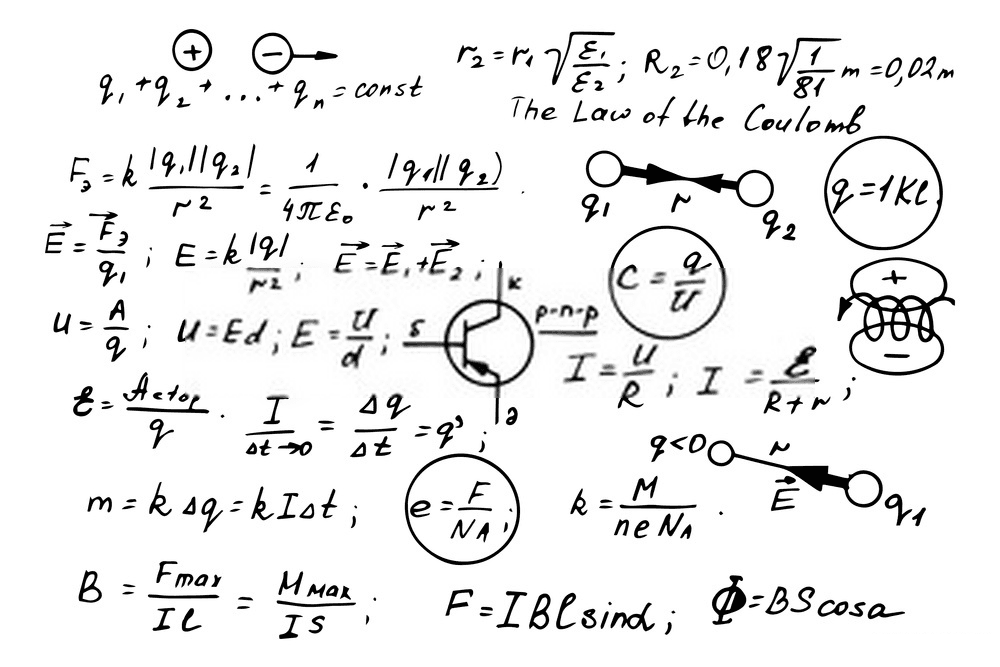 + −
q₁ + q₂ + ... + qₙ = const
r₂ = r₁ √(ε₁/ε₂); R₂ = 0,18 √(1/81) m = 0,02m
The Law of the Coulomb
Fэ = k |q₁||q₂|/r² = 1/4πε₀ · |q₁||q₂)/r² .
q₁ r q₂
q = 1Kl.
E⃗ = F⃗э/q₁; E = k |q|/r²; E⃗ = E⃗₁ + E⃗₂;
C = q/U
+ −
U = A/q; U = Ed; E = U/d;
к
б
э
p-n-p
I = U/R; I = ℰ/R+r;
ℰ = Aстор/q . I/Δt→0 = Δq/Δt = q';
q<0 r E⃗ q₁
m = k Δq = k I Δt;
e = F/Nᴀ;
k = M/neNᴀ .
B = Fmax/Il = Mмах/IS;
F = IBlsinα;
Φ = BScosα